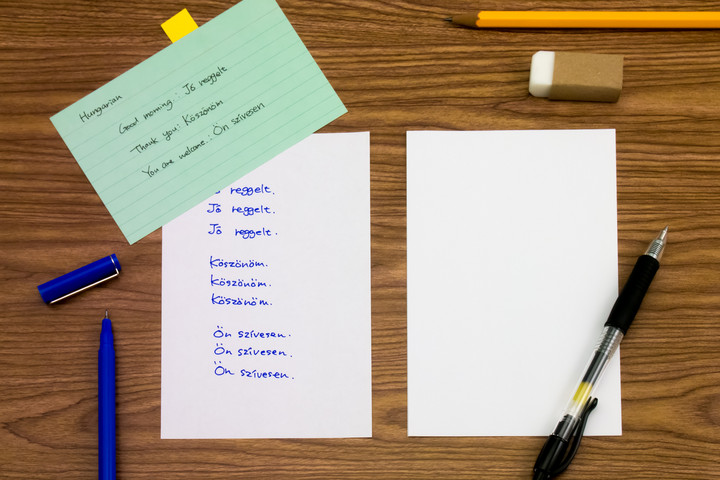 Hungarian
Good morning: Jó reggelt
Thank you: Köszönöm
You are welcome.: Ön szívesen
reggelt.
Jó reggelt.
Jó reggelt.
Köszönöm.
Köszönöm.
Köszönöm.
Ön szívesen.
Ön szívesen.
Ön szívesen.